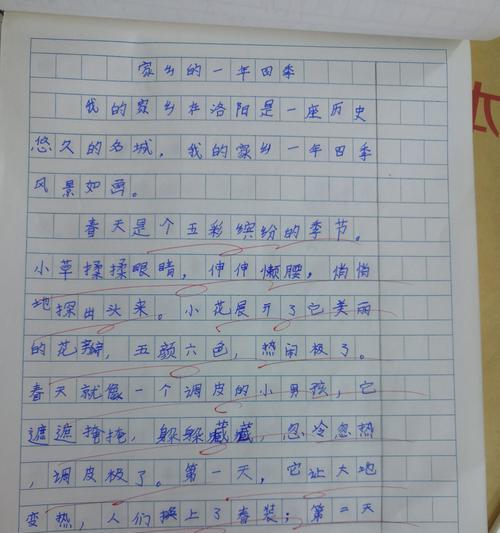 家乡的一年四季
我的家乡在洛阳是一座历史
悠久的名城，我的家乡一年四季
风景如画。
春天是个五彩缤纷的季节。
小草揉揉眼睛，伸伸懒腰，俏俏
地探出头来。小花展开了它美丽
的花瓣，五颜六色，热闹极了。
春天就像一个调皮的小男孩，它
遮遮掩掩，躲躲藏藏，忽冷忽热
，调皮极了。第一天，它让大地
变热，人们换上了春装；第二天